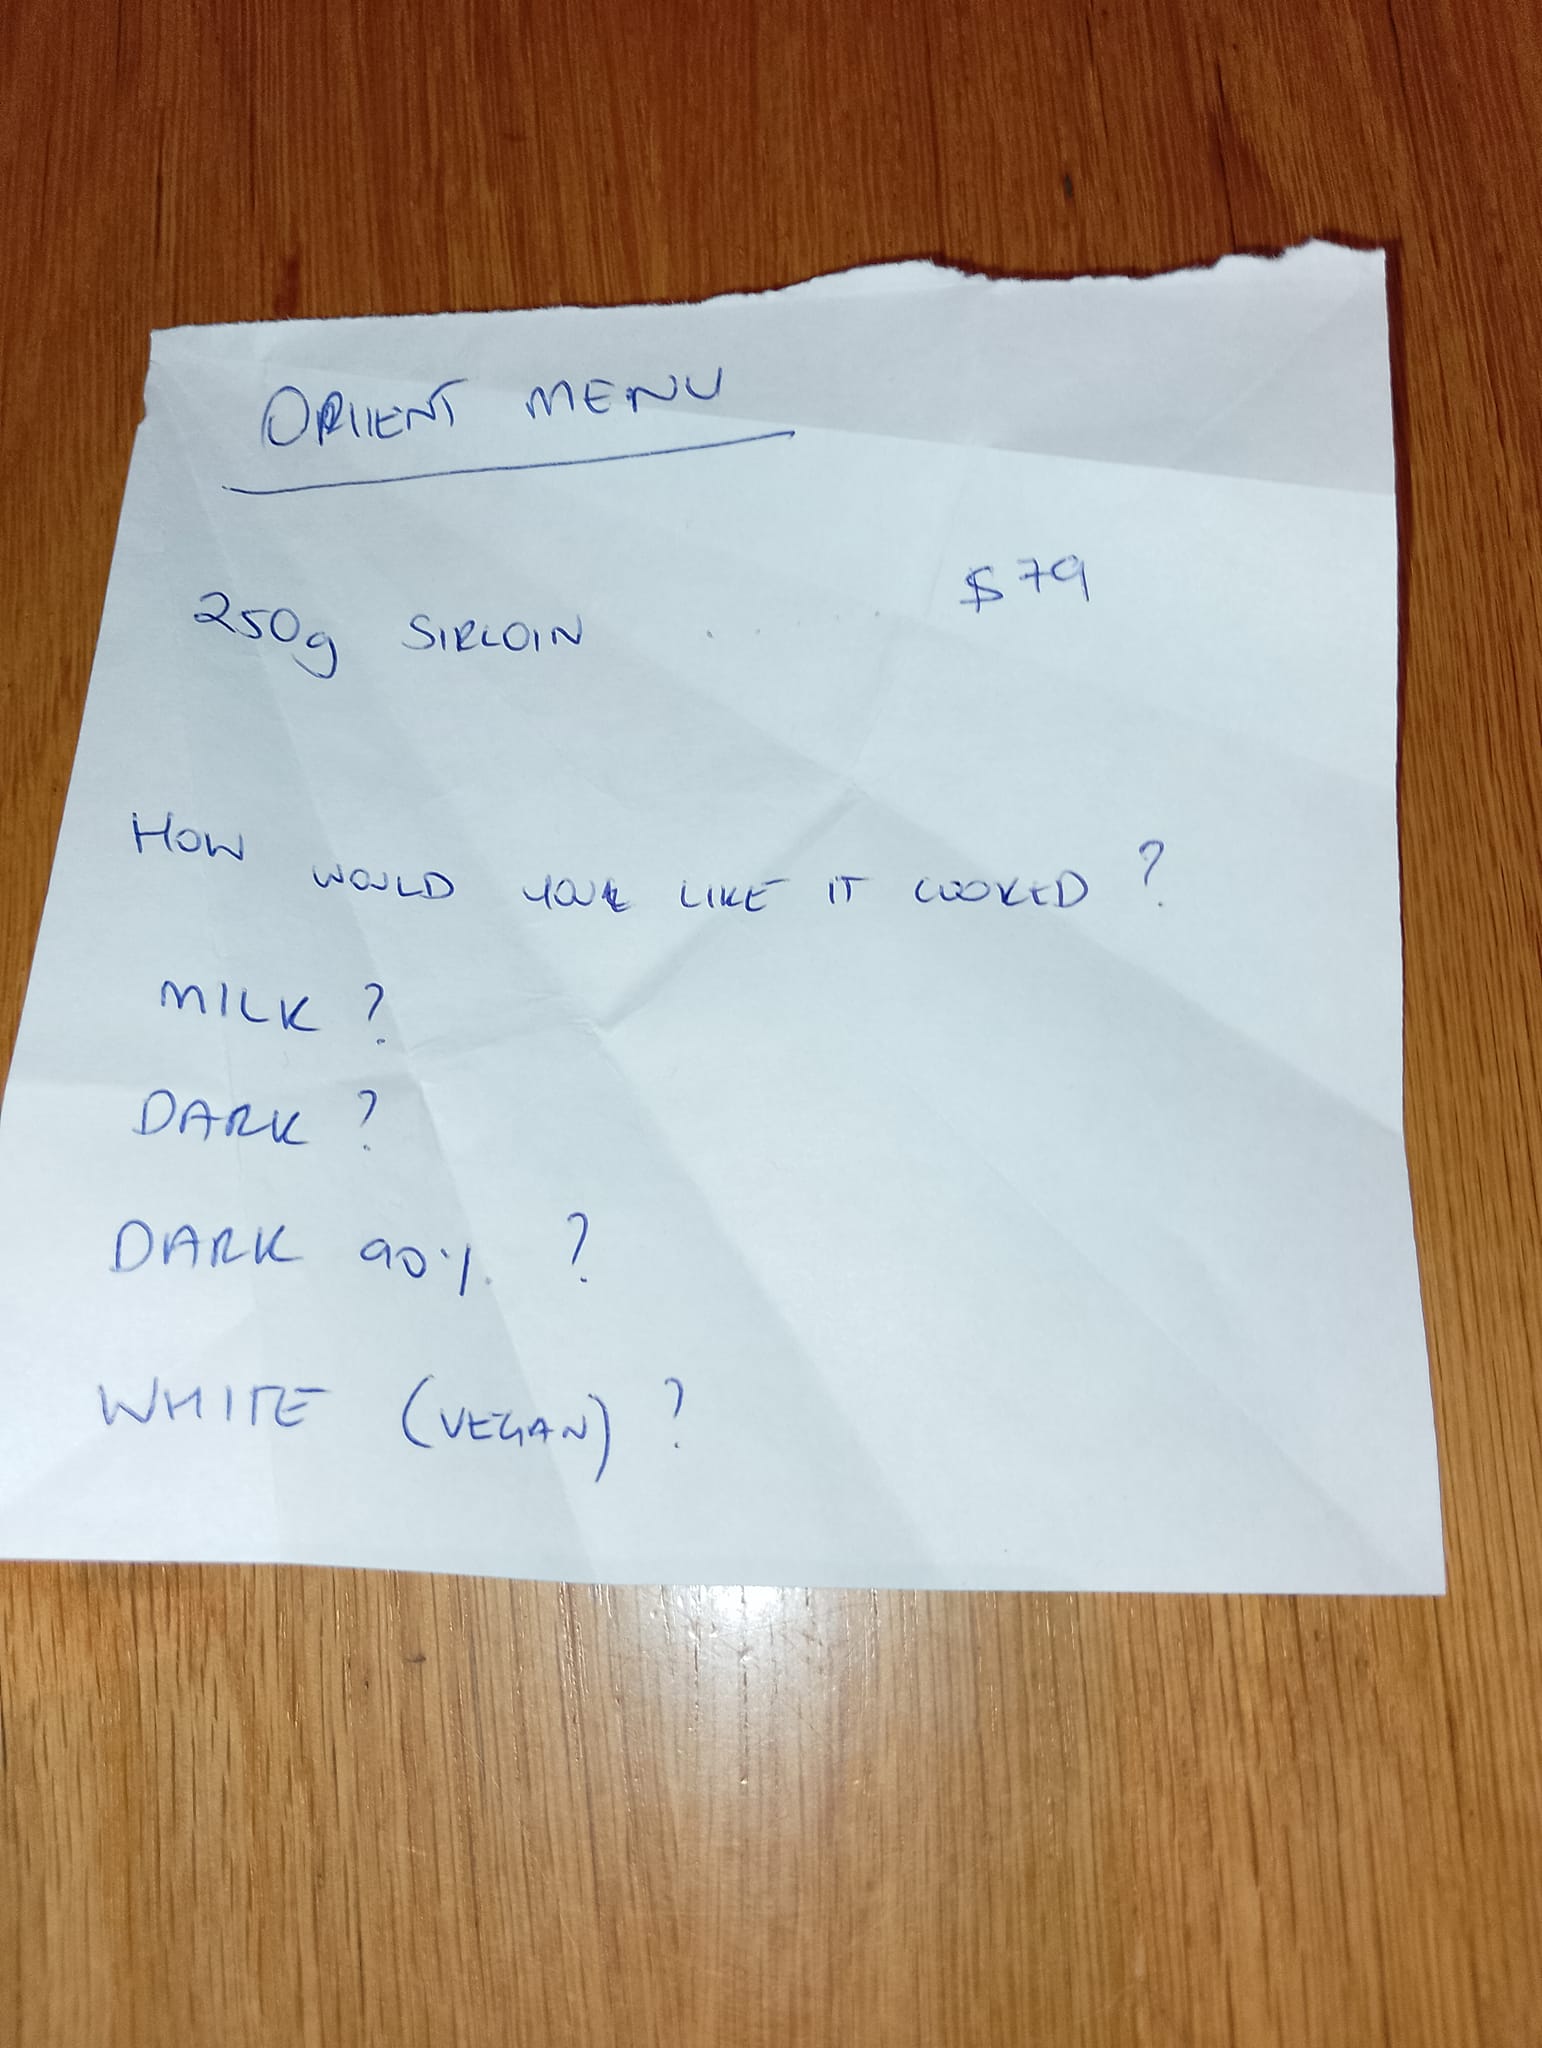 ORIENT MENU
250g SIRLOIN ...... $79
HOW WOULD YOU LIKE IT COOKED?
MILK?
DARK?
DARK 90% ?
WHITE (VEGAN)?